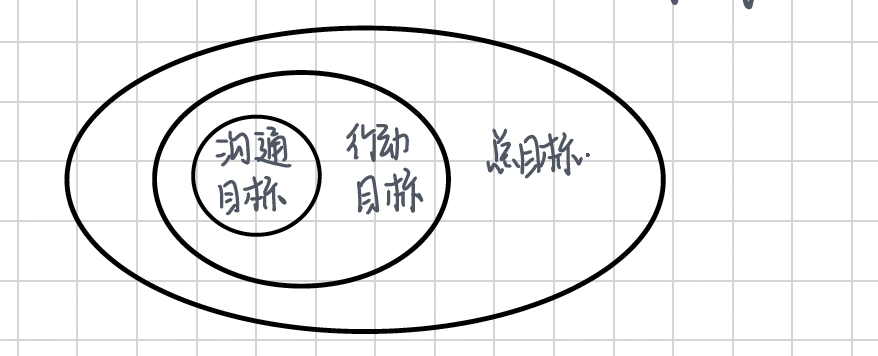 沟通
目标
行动
目标
总目标